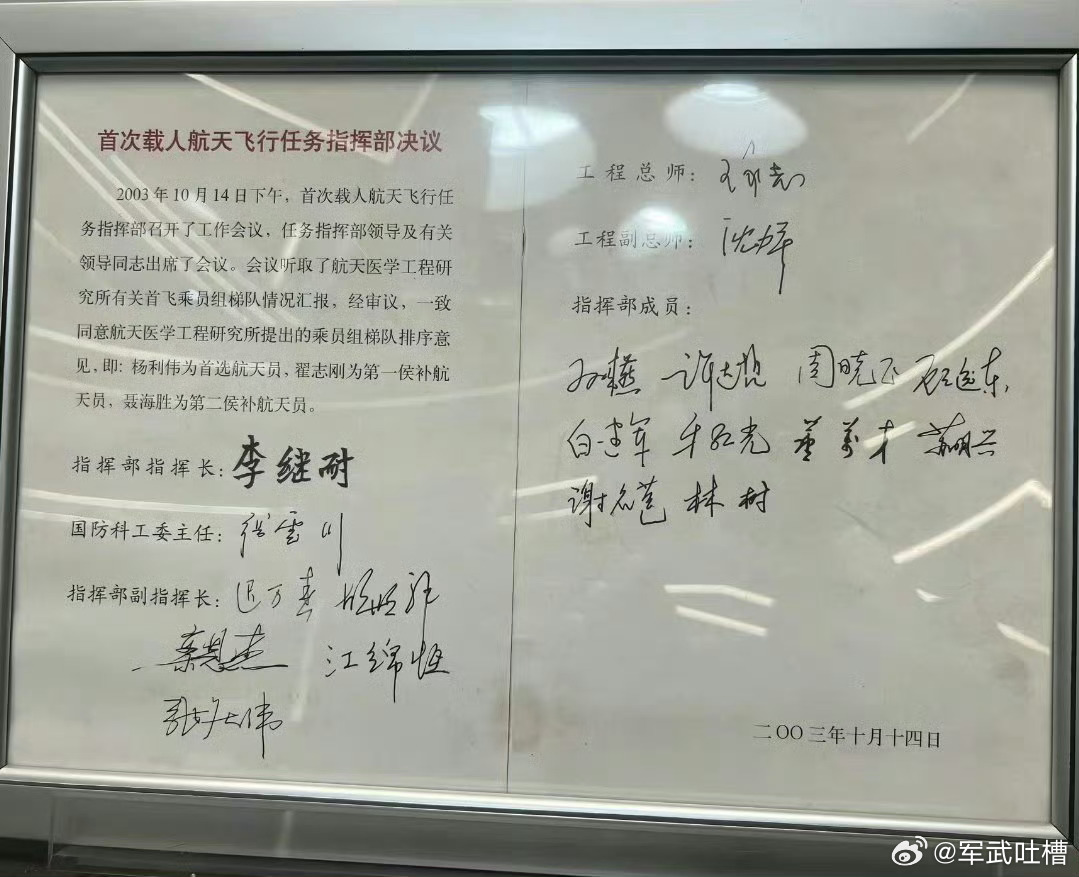 首次载人航天飞行任务指挥部决议
2003年10月14日下午，首次载人航天飞行任
务指挥部召开了工作会议，任务指挥部领导及有关
领导同志出席了会议。会议听取了航天医学工程研
究所有关首飞乘员组梯队情况汇报，经审议，一致
同意航天医学工程研究所提出的乘员组梯队排序意
见，即：杨利伟为首选航天员，翟志刚为第一侯补航
天员，聂海胜为第二侯补航天员。
指挥部指挥长：李继耐
国防科工委主任：张云川
指挥部副指挥长：迟万春
江绵恒
工程总师：王永志
工程副总师：沈力平
指挥部成员：
许达哲 周晓飞 顾逸东
白建军 牛红光 董万才
谢名苞 林树
二〇〇三年十月十四日
@军武吐槽